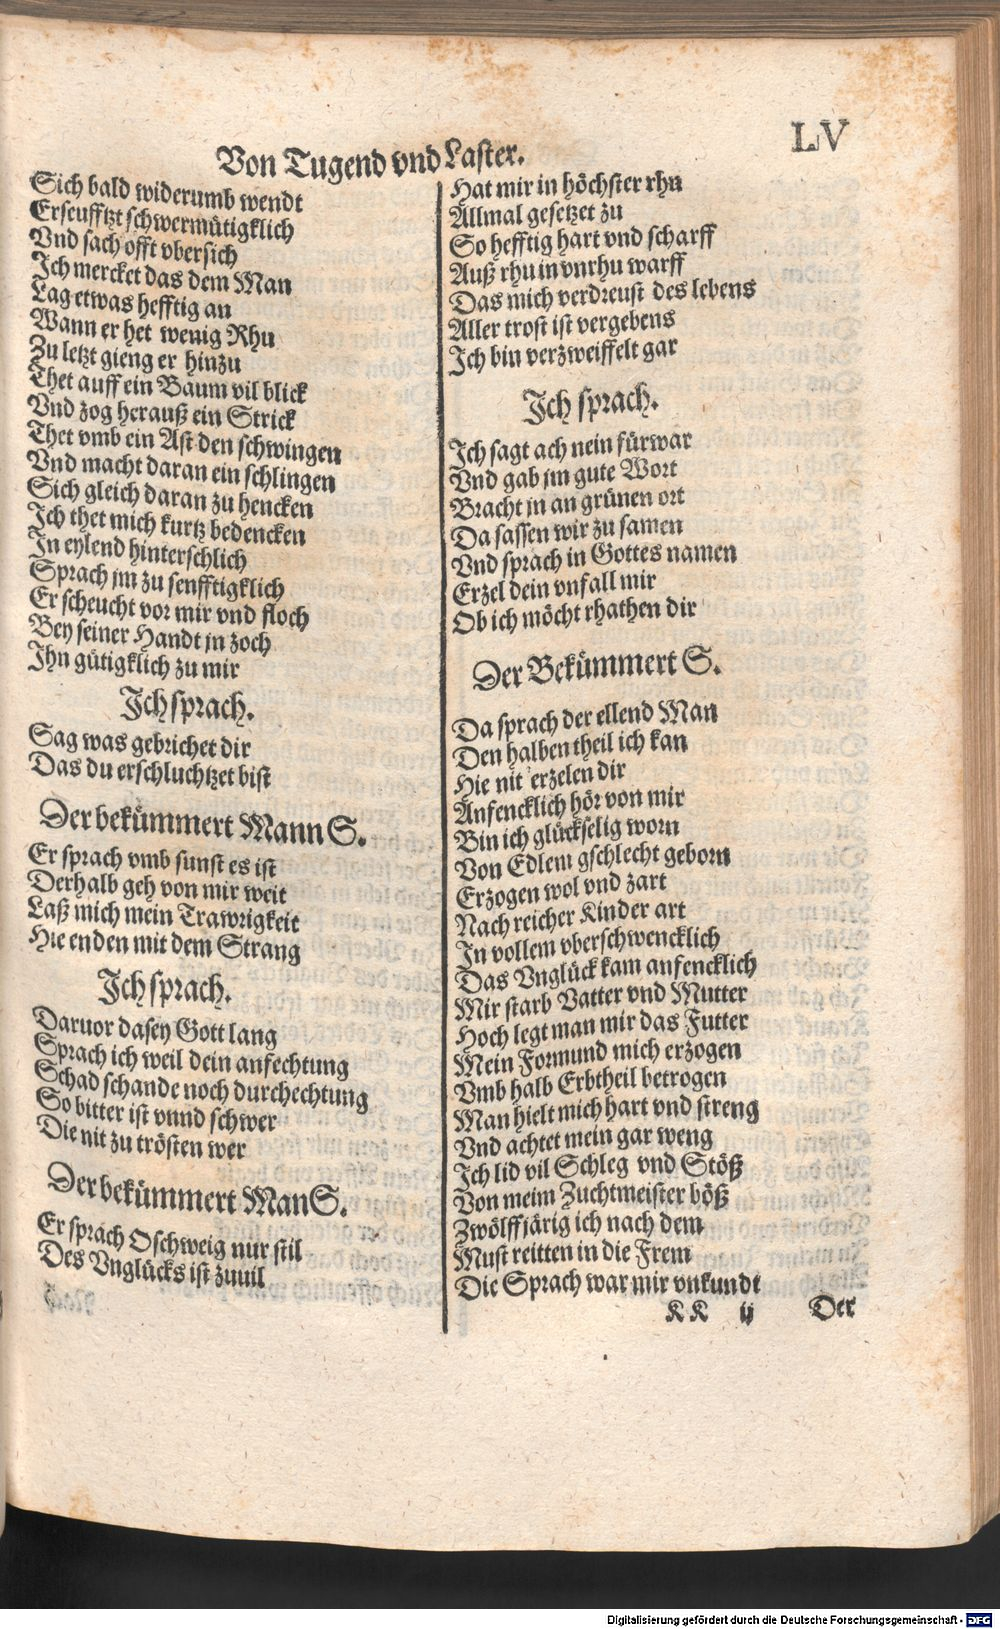 LV
Von Tugend vnd Laster.
Sich bald widerumb wendt
Erseufftzt schwermütigklich
Vnd sach offt vbersich
Ich mercket das dem Man
Lag etwas hefftig an
Wann er het wenig Rhu
Zu letzt gieng er hinzu
Thet auff ein Baum vil blick
Vnd zog herauß ein Strick
Thet vmb ein Ast den schwingen
Vnd macht daran ein schlingen
Sich gleich daran zu hencken
Ich thet mich kurtz bedencken
In eylend hinterschlich
Sprach jm zu senfftigklich
Er scheucht vor mir vnd floch
Bey seiner Handt jn zoch
Ihn gütigklich zu mir
Ich sprach.
Sag was gebrichet dir
Das du erschluchtzet bist
Der bekümmert Mann S.
Er sprach vmb sunst es ist
Derhalb geh von mir weit
Laß mich mein Trawrigkeit
Hie enden mit dem Strang
Ich sprach.
Daruor da sey Gott lang
Sprach ich weil dein anfechtung
Schad schande noch durchechtung
So bitter ist vnnd schwer
Die nit zu trösten wer
Der bekümmert Man S.
Er sprach O schweig nur stil
Des Vnglücks ist zuuil
Hat mir in höchster rhu
Allmal gesetzet zu
So hefftig hart vnd scharff
Auß rhu in vnrhu warff
Das mich verdreust des lebens
Aller trost ist vergebens
Ich bin verzweiffelt gar
Ich sprach.
Ich sagt ach nein fürwar
Vnd gab jm gute Wort
Bracht jn an grünen ort
Da sassen wir zu samen
Vnd sprach in Gottes namen
Erzel dein vnfall mir
Ob ich möcht rhathen dir
Der Bekümmert S.
Da sprach der ellend Man
Den halben theil ich kan
Hie nit erzelen dir
Anfencklich hör von mir
Bin ich glückselig worn
Von Edlem gschlecht geborn
Erzogen wol vnd zart
Nach reicher Kinder art
In vollem vberschwencklich
Das Vnglück kam anfencklich
Mir starb Vatter vnd Mutter
Hoch legt man mir das Futter
Mein Formund mich erzogen
Vmb halb Erbtheil betrogen
Man hielt mich hart vnd streng
Vnd achtet mein gar weng
Ich lid vil Schleg vnd Stöß
Von meim Zuchtmeister böß
Zwölffjärig ich nach dem
Must reitten in die Frem
Die Sprach war mir vnkundt
KK ij Der
Digitalisierung gefördert durch die Deutsche Forschungsgemeinschaft - DFG